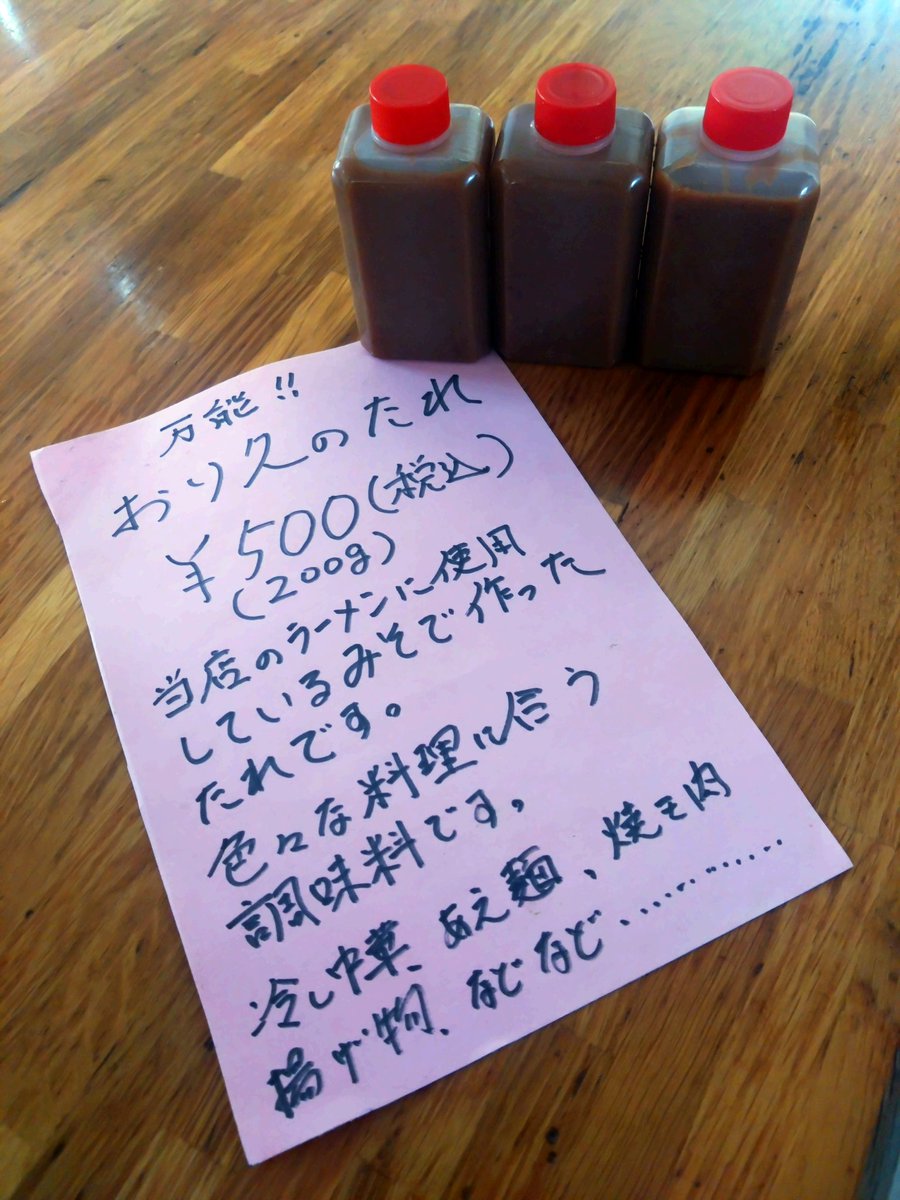 万能!!
おり久のたれ
¥500(税込)
(200g)
当店のラーメンに使用
しているみそで作った
たれです。
色々な料理に合う
調味料です。
冷し中華、あえ麺、焼き肉
揚げ物、などなど............